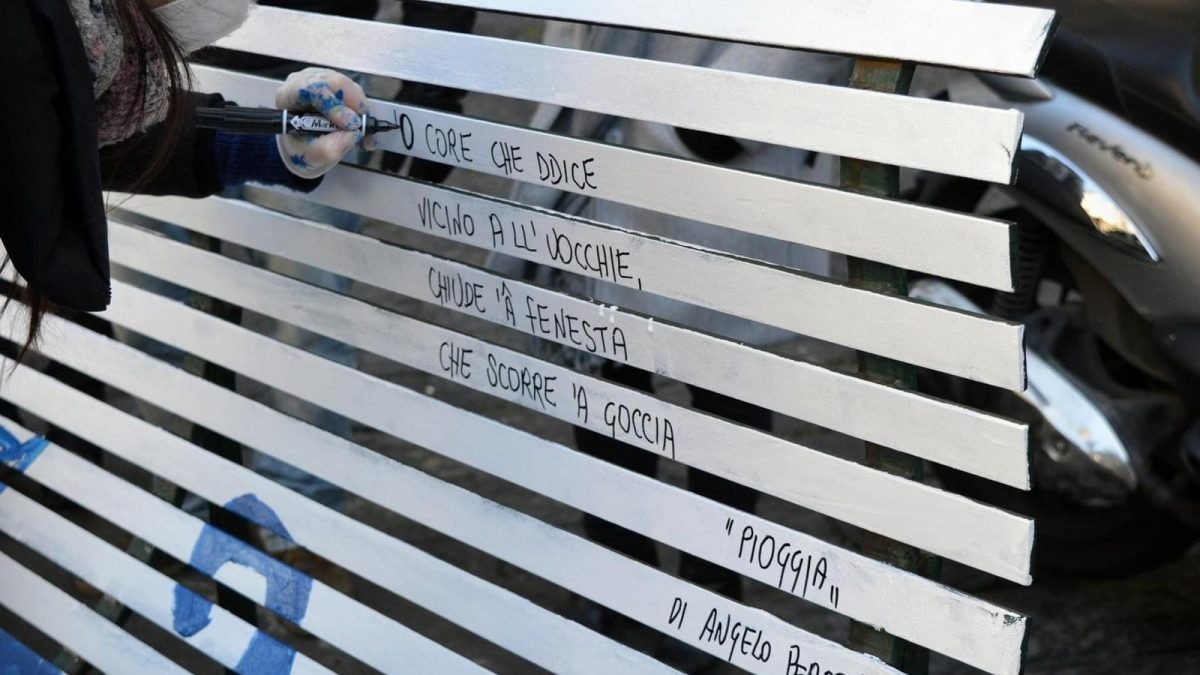 'O CORE CHE DDICE
VICINO ALL' UOCCHIE,
CHIUDE 'Â FENESTA
CHE SCORRE 'A GOCCIA
"PIOGGIA"
DI ANGELO